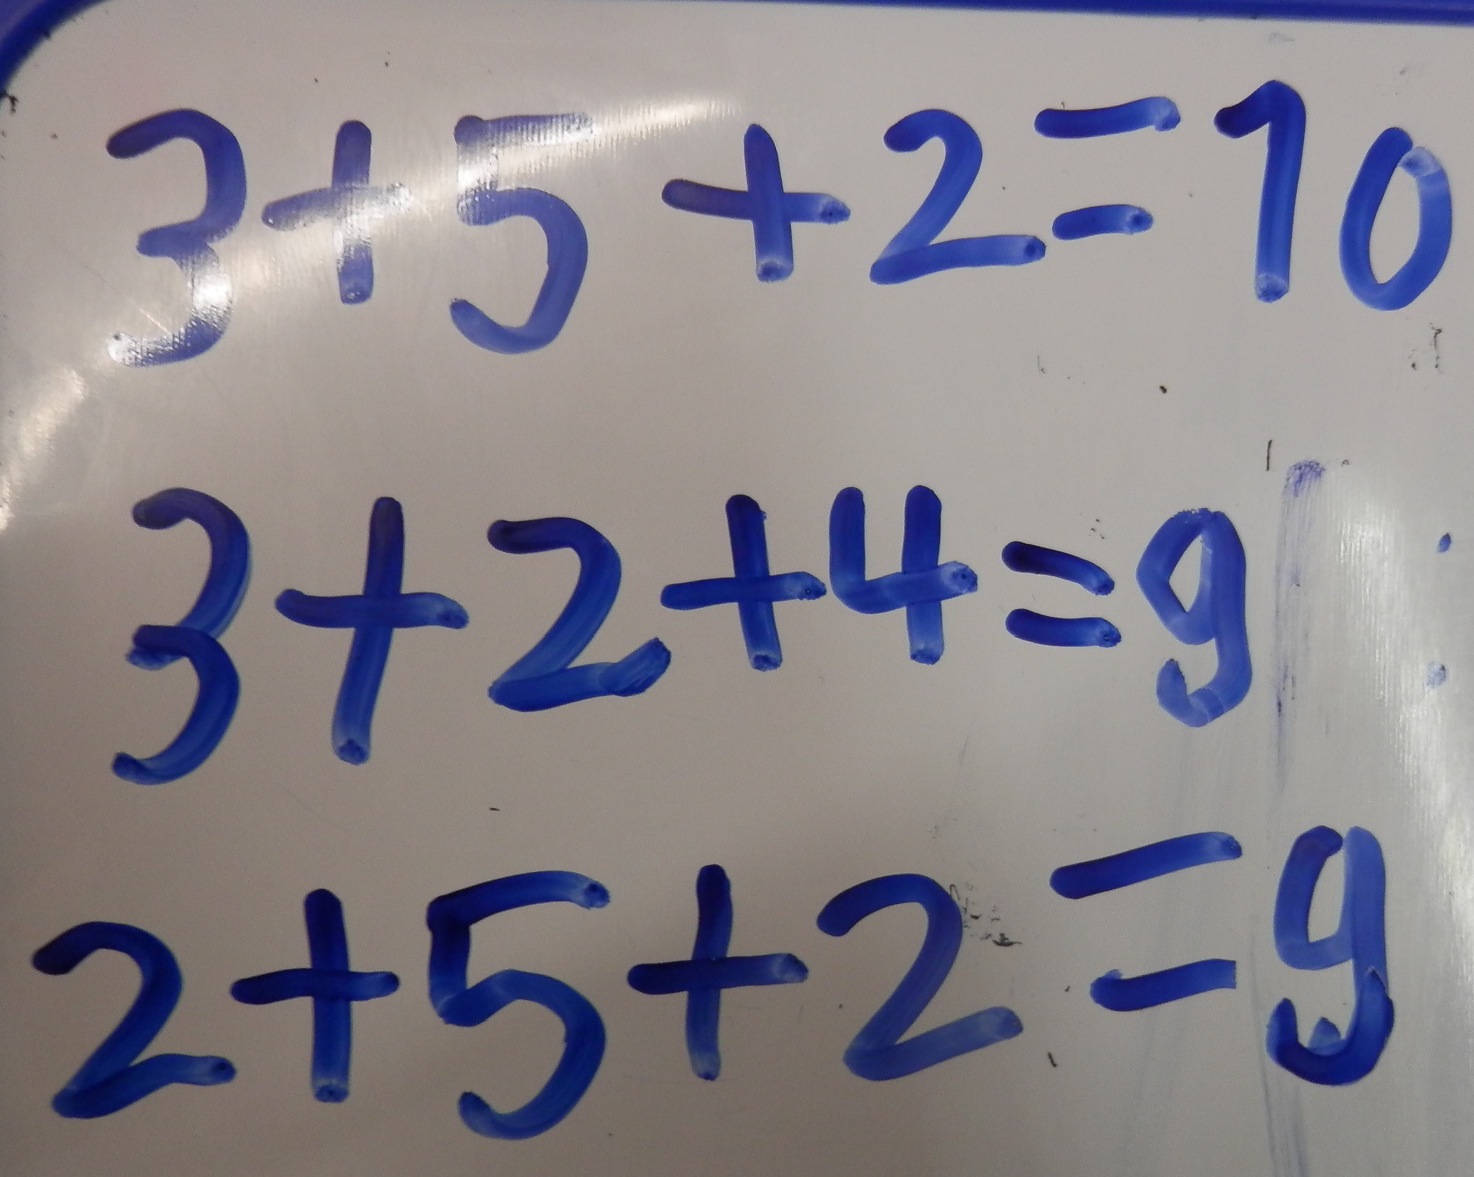 3+5+2=10
3+2+4=9
2+5+2=9